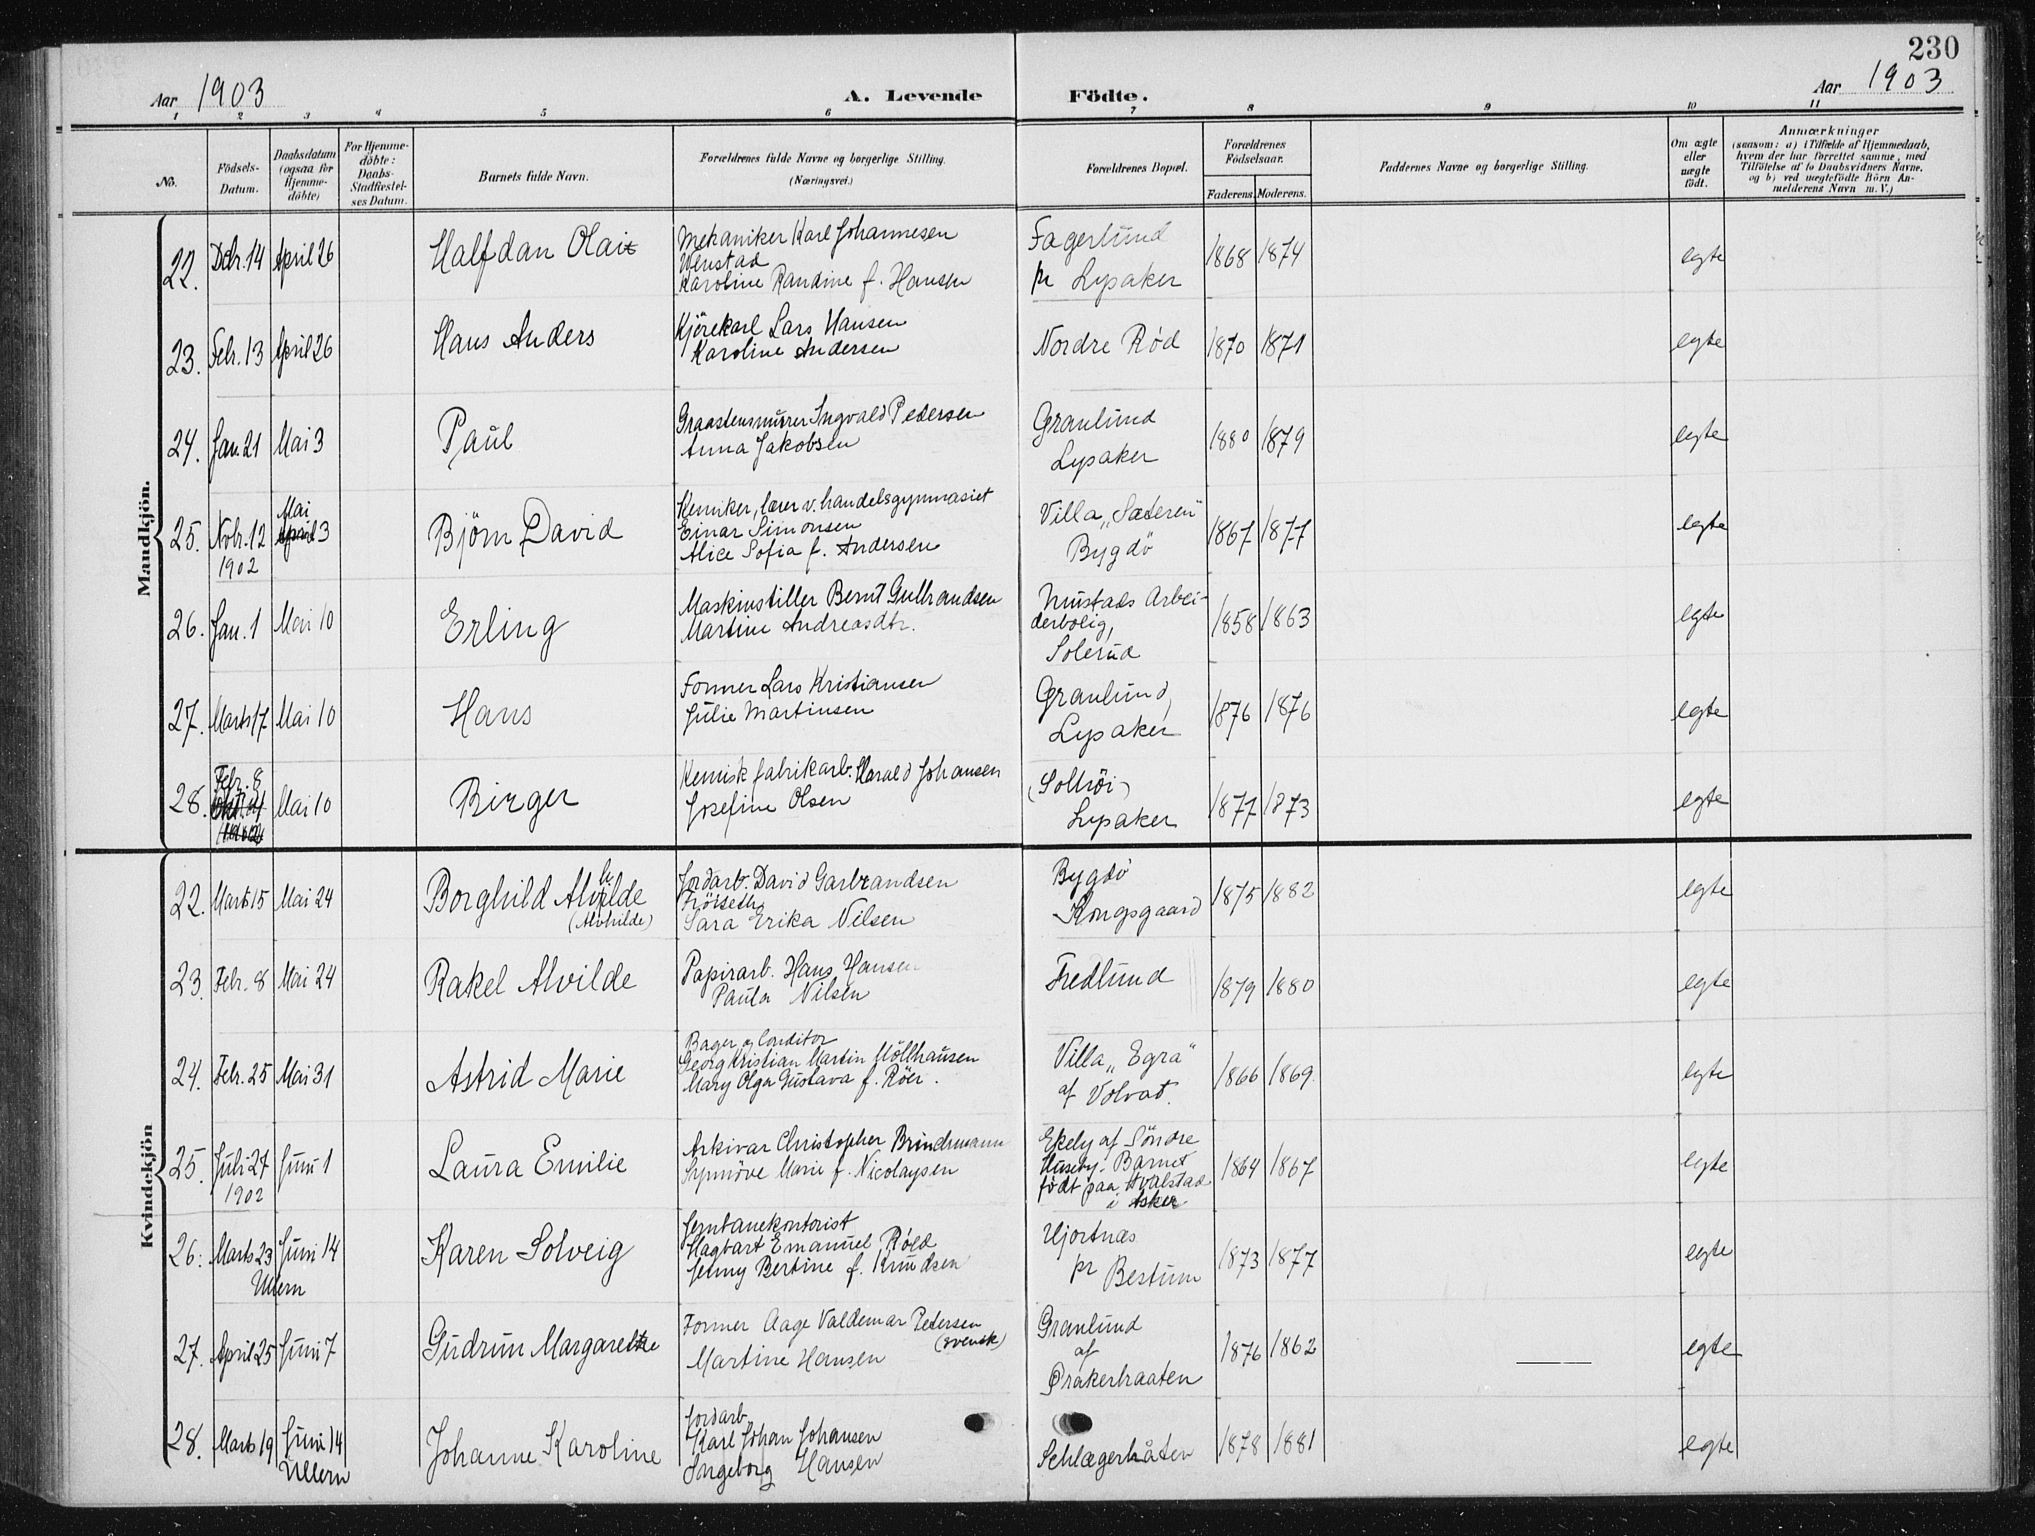 230
Aar 1903
A. Levende Födte.
Aar 1903
1 2 3 4 5 6 7 8 9 10 11
No.
Födsels-Datum.
Daabsdatum (ogsaa for Hjemme-döbte)
For Hjemme-döbte: Daabs-Stadfæstel-ses Datum.
Barnets fulde Navn.
Forældrenes fulde Navne og borgerlige Stilling. (Næringsvei.)
Forældrenes Bopæl.
Forældrenes Födselsaar.
Faderens. Moderens.
Faddernes Navne og borgerlige Stilling.
Om ægte eller uægte födt.
Anmærkninger
(saasom: a) i Tilfælde af Hjemmedaab, hvem der har forrettet samme, med Tilföielse af to Daabsvidners Navne, og b) ved uægtefödte Börn An-melderens Navn m. V.)
Mandkjön.
22. Dcbr. 14 April 26 Halfdan Olai
Mekaniker Karl Johannesen
Wenstad
Karoline Randine f. Hansen
Fagerlund
pr Lysaker
1868 1874 egte
23. Febr. 13 April 26 Hans Anders
Kjörekarl Lars Hansen
Karoline Andersen
Nordre Röd 1870 1871 egte
24. Jan. 21 Mai 3 Paul
Graastensmurer Ingvald Pedersen
Anna Jakobsen
Granlund
Lysaker
1880 1879 egte
25. Novbr. 12 1902 Mai April 3 Björn David
Kemiker, lærer v. handelsgymnasiet
Einar Simonsen
Alice Sofia f. Andersen
Villa "Sæteren"
Bygdö
1867 1877 egte
26. Jan. 1 Mai 10 Erling
Maskinstiller Bernt Gulbrandsen
Martine Andreasdtr.
Mustads Arbei-
derbolig,
Solerud
1858 1863 egte
27. Marts 17 Mai 10 Hans
Former Lars Kristiansen
Julie Martinsen
Granlund,
Lysaker
1876 1876 egte
28. Febr. 8 Mai 10 Birger
Kemisk fabrikarb. Harald Johansen
Josefine Olsen
(Solhöi)
Lysaker
1877 1873 egte
Kvindekjön
22. Marts 15 Mai 24 Borghild Alvhilde
(Alvhilde)
Jordarb. David Garbrandsen
Fröiseth
Sara Erika Nilsen
Bygdö
Kongsgaard
1875 1882 egte
23. Febr. 8 Mai 24 Rakel Alvilde
Papirarb. Hans Hansen
Paula Nilsen
Fredlund 1879 1880 egte
24. Febr. 25 Mai 31 Astrid Marie
Bager og Conditor
Georg Kristian Martin Möllhausen
Mary Olga Gustava f. Röer.
Villa "Egra"
af Volvat.
1866 1869 egte
25. Juli 27 1902 Juni 1 Laura Emilie
Arkivar Christopher Brinchmann
Synnöve Marie f. Nicolaysen
Ekely af Söndre
Huseby. Barnet
födt paa Hvalstad
i Asker
1864 1867 egte
26. Marts 23 Juni 14 Ullern Karen Solveig
Jernbanekontorist
Hagbart Emanuel Röed
Jenny Bertine f. Knudsen
Hjortnæs
pr Bestum
1873 1877 egte
27. April 25 Juni 7 Gudrun Margarethe
Former Aage Valdemar Pedersen
(svensk)
Martine Hansen
Granlund
af
Örakerbraaten
1876 1862 egte
28. Marts 19 Juni 14 Ullern Johanne Karoline
Jordarb.
Karl Johan Johansen
Ingeborg Hansen
Schlægerbråten
1878 1881 egte